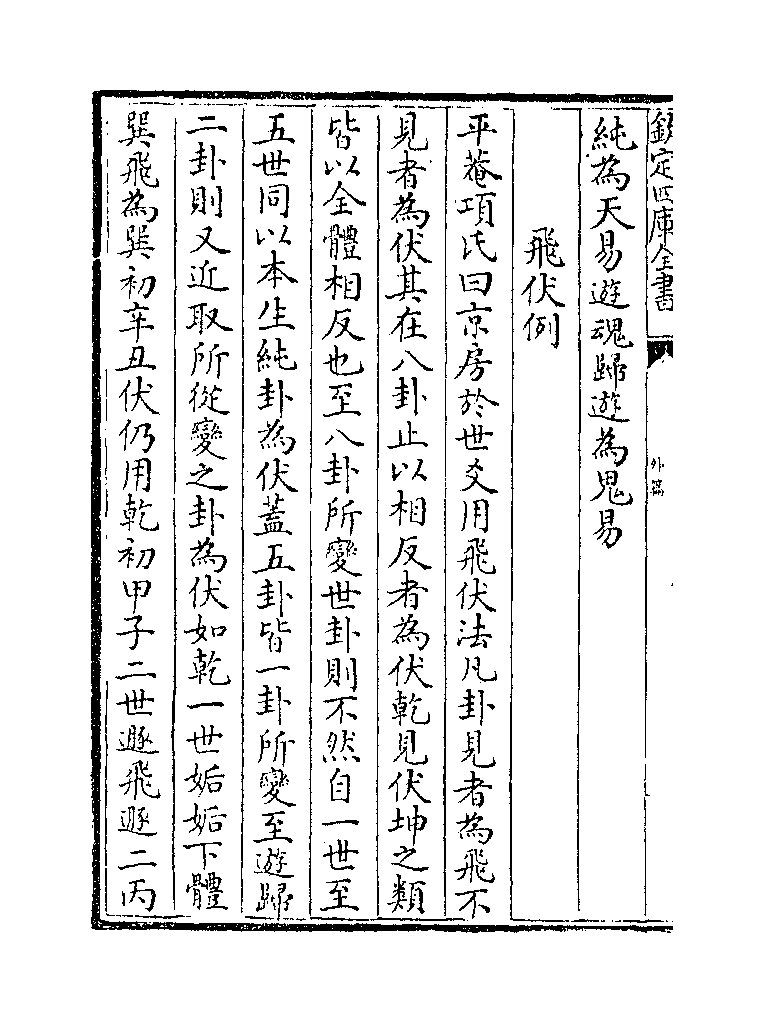 欽定四庫全書
外篇
純為天易遊魂歸遊為鬼易
飛伏例
平菴項氏曰京房於世爻用飛伏法凡卦見者為飛不
見者為伏其在八卦止以相反者為伏乾見伏坤之類
皆以全體相反也至八卦所變世卦則不然自一世至
五世同以本生純卦為伏蓋五卦皆一卦所變至遊歸
二卦則又近取所從變之卦為伏如乾一世姤姤下體
巽飛為巽初辛丑伏仍用乾初甲子二世遯飛遯二丙